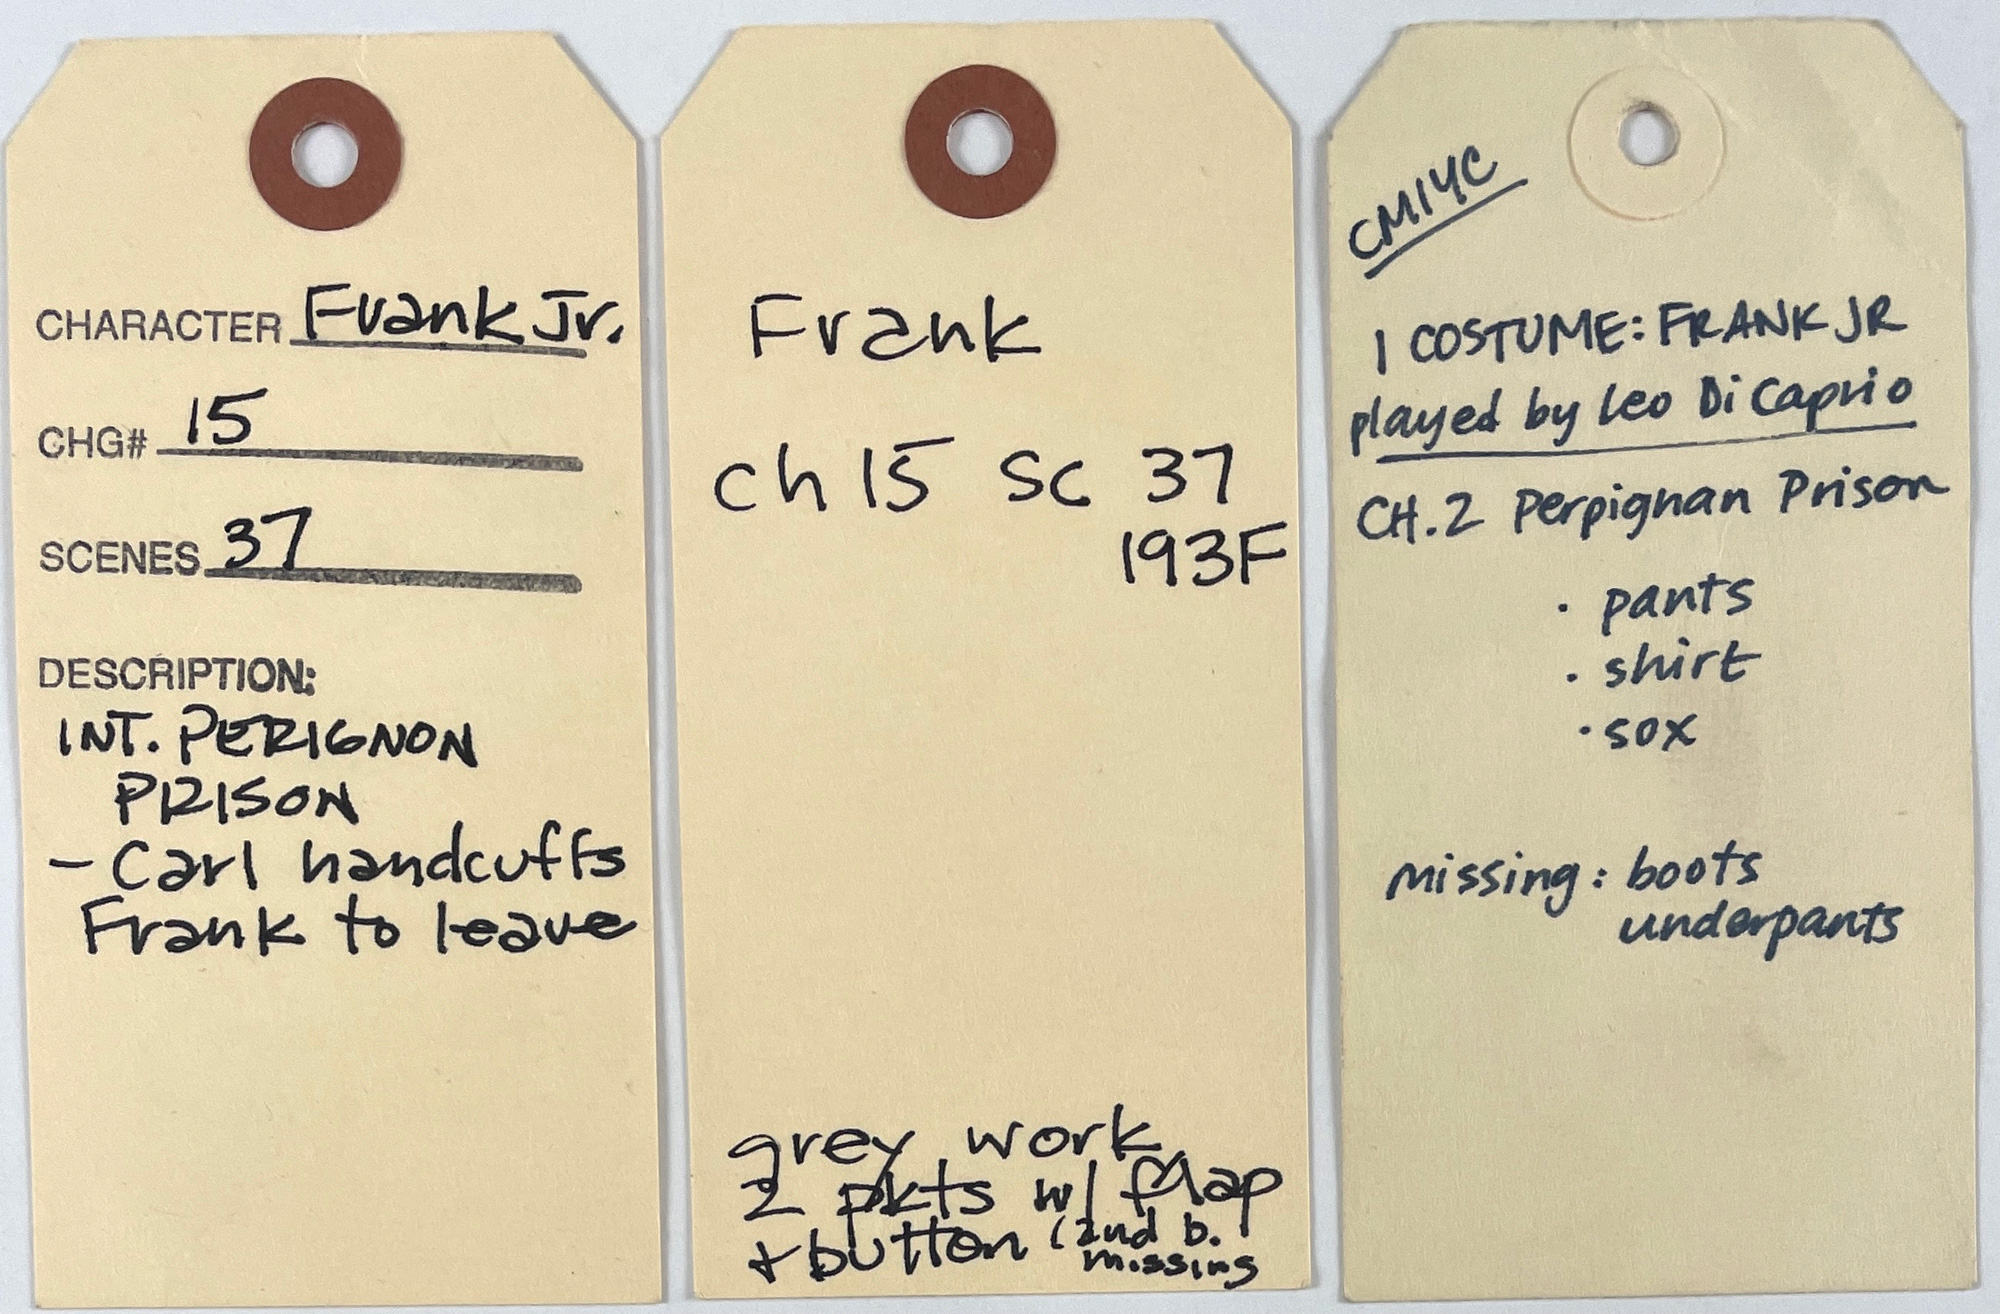 CHARACTER Frank Jr.
CHG# 15
SCENES 37
DESCRIPTION:
INT. PERIGNON
PRISON
- Carl handcuffs
Frank to leave
Frank
Ch 15 Sc 37
193F
grey work
2 pkts w/ flap
+ button (2nd b.
missing
CMIYC
1 COSTUME: FRANK JR
played by Leo DiCaprio
CH. 2 Perpignan Prison
· pants
· shirt
· sox
missing: boots
underpants